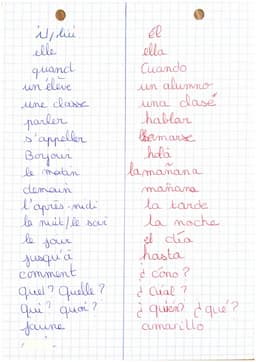 il, lui él
elle ella
quand Cuando
un élève un alumno
une classe una clase
parler hablar
s'appeller llamarse
Bonjour holà
le matin la mañana
demain mañana
l'après-midi la tarde
la nuit/le soir la noche
le jour el día
jusqu'à hasta
comment ¿ cómo ?
quel ? quelle ? ¿ Cuál ?
qui ? quoi ? ¿ quién ? ¿ qué ?
jaune amarillo